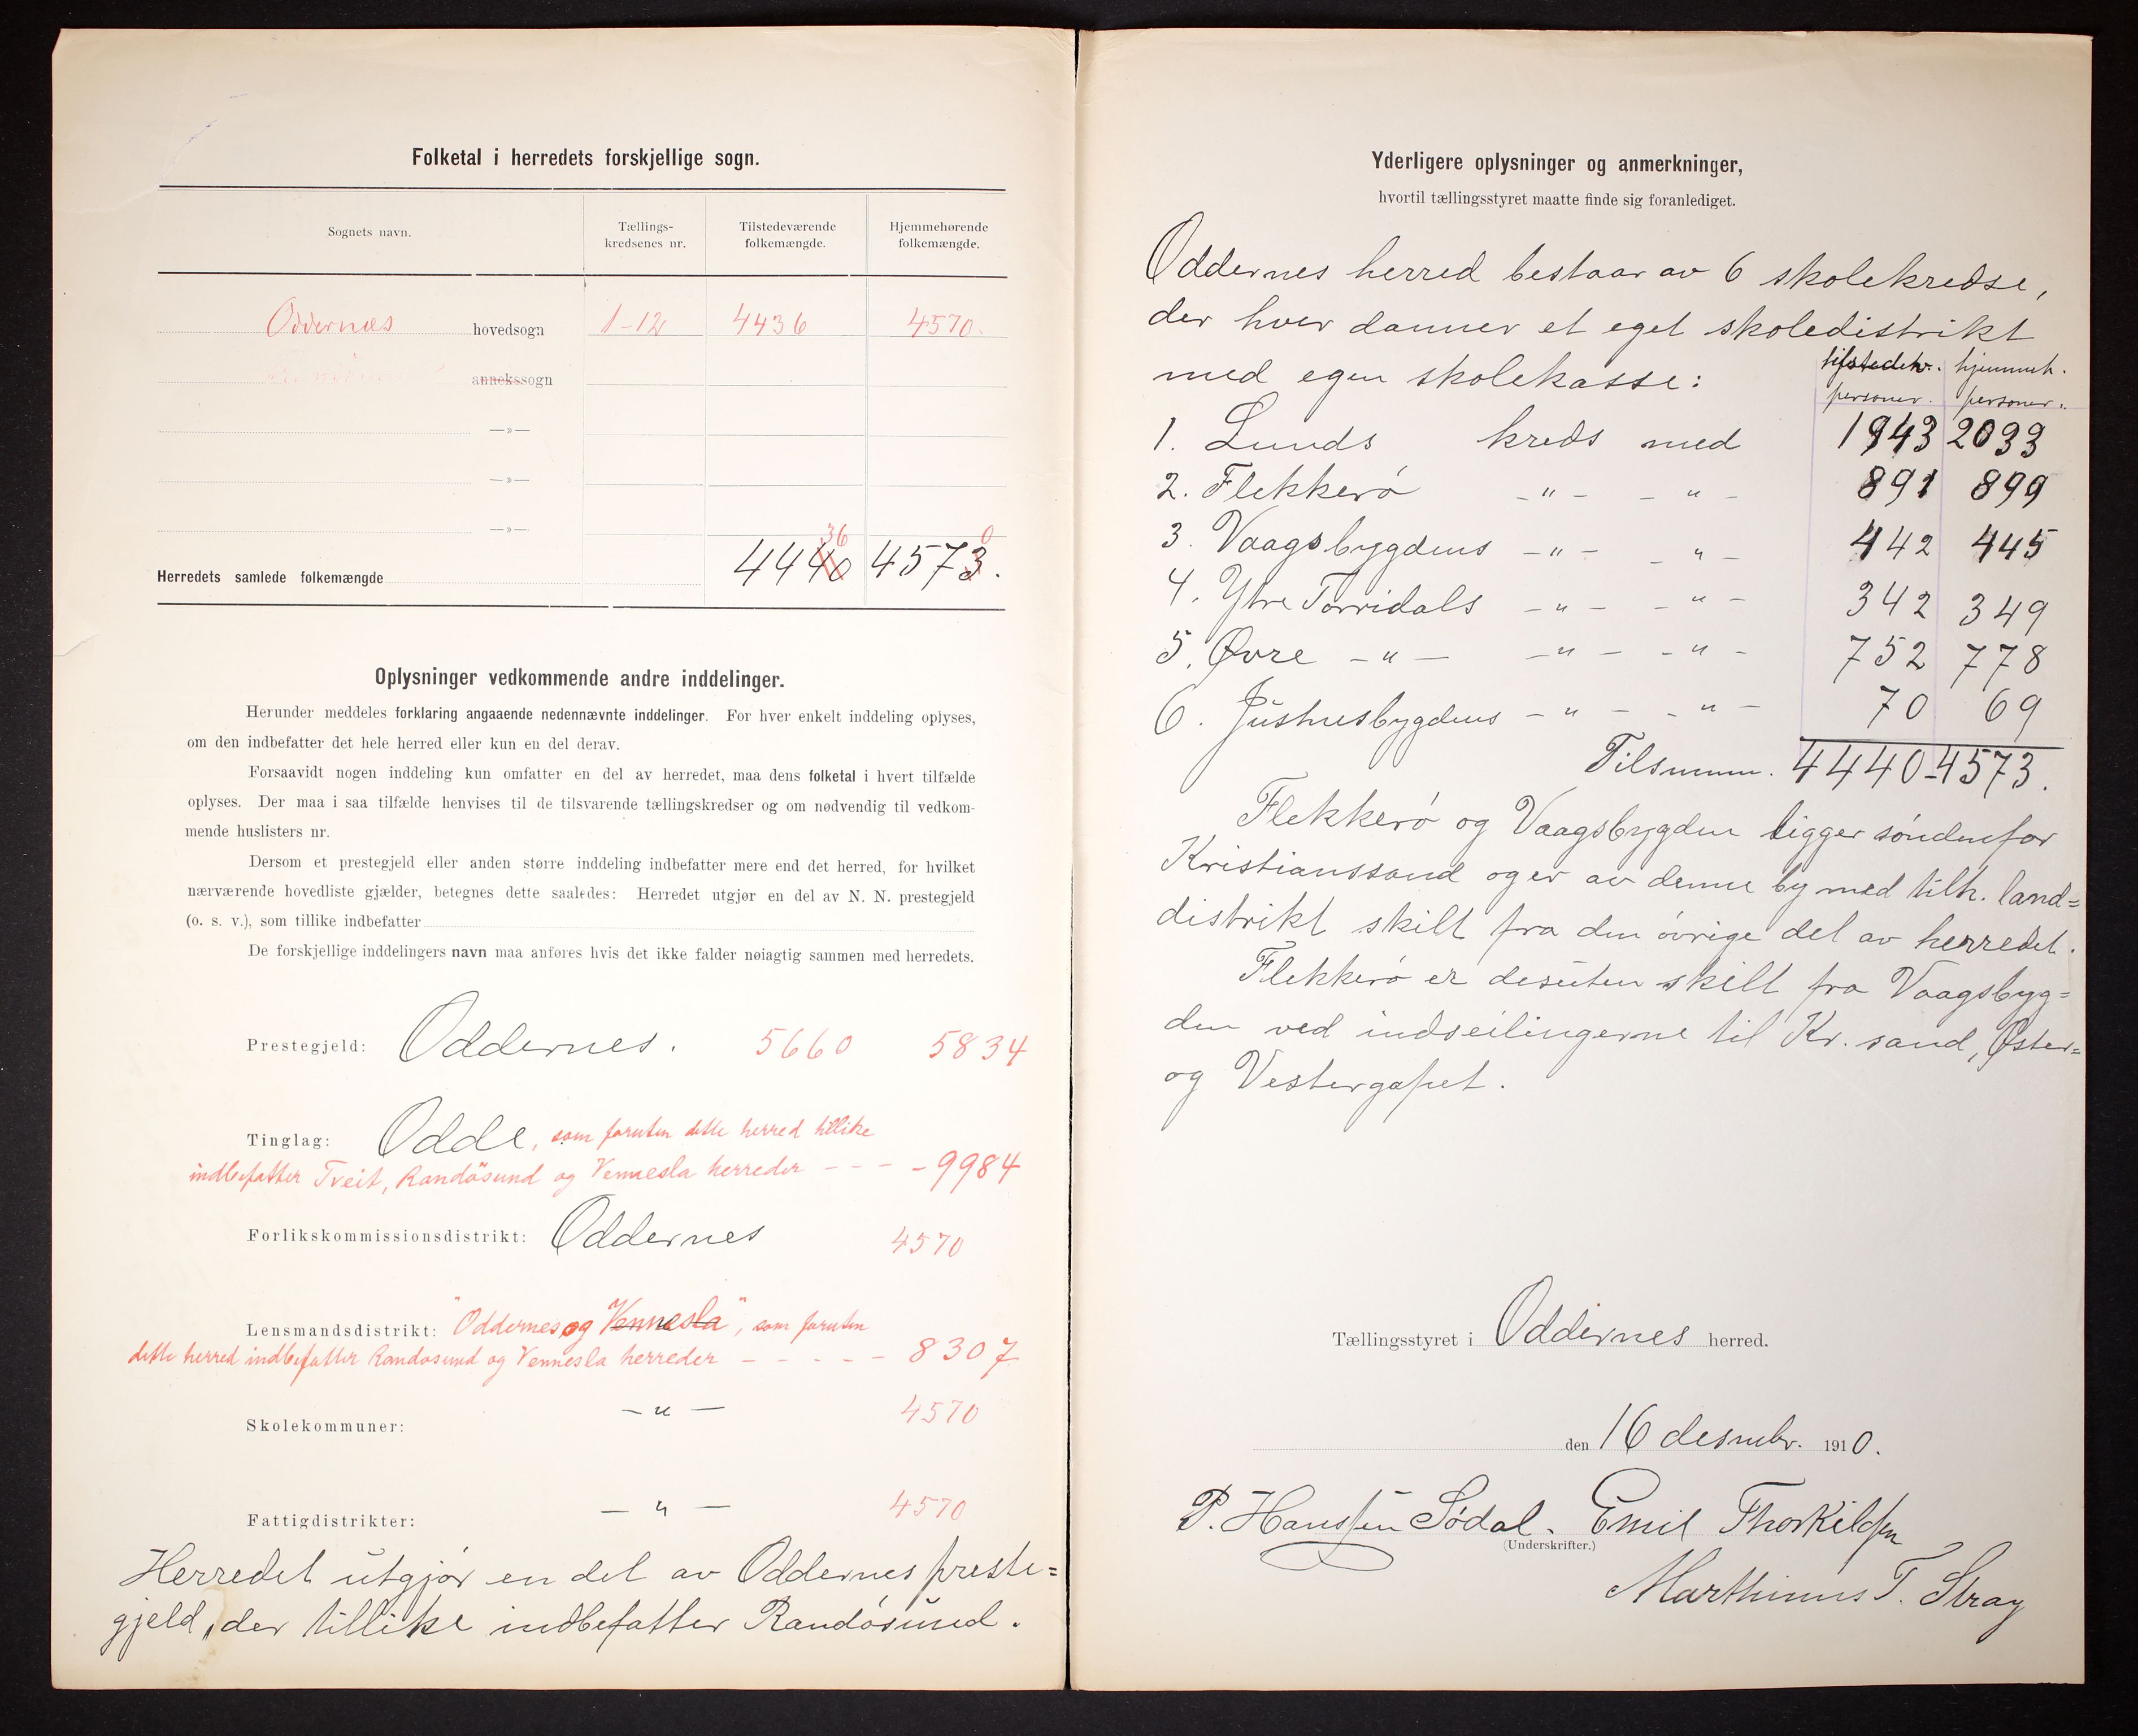 Folketal i herredets forskjellige sogn.
Sognets navn. Tællings- kredsenes nr. Tilstedeværende folkemængde. Hjemmehørende folkemængde.
Oddernes hovedsogn 1-12 4436 4570.
annekssogn
—»—
—»—
—»—
36 0
Herredets samlede folkemængde 4440 4573.
Oplysninger vedkommende andre inddelinger.
Herunder meddeles forklaring angaaende nedennævnte inddelinger. For hver enkelt inddeling oplyses,
om den indbefatter det hele herred eller kun en del derav.
Forsaavidt nogen inddeling kun omfatter en del av herredet, maa dens folketal i hvert tilfælde
oplyses. Der maa i saa tilfælde henvises til de tilsvarende tællingskredser og om nødvendig til vedkom-
mende huslisters nr.
Dersom et prestegjeld eller anden større inddeling indbefatter mere end det herred, for hvilket
nærværende hovedliste gjælder, betegnes dette saaledes: Herredet utgjør en del av N. N. prestegjeld
(o. s. v.), som tillike indbefatter
De forskjellige inddelingers navn maa anføres hvis det ikke falder nøiagtig sammen med herredets.
Prestegjeld: Oddernes. 5660 5834
Tinglag: Odde, som foruten dette herred tillike
indbefatter Tveit, Randösund og Vennesla herreder - - - - 9984
Forlikskommissionsdistrikt: Oddernes 4570
Lensmandsdistrikt: "Oddernes og Vennesla", som foruten
dette herred indbefatter Randosund og Vennesla herreder - - - - - 8307
Skolekommuner: —"— 4570
Fattigdistrikter: —"— 4570
Herredet utgjør en del av Oddernes preste=
gjeld, der tillike indbefatter Randósund.
Yderligere oplysninger og anmerkninger,
hvortil tællingsstyret maatte finde sig foranlediget.
Oddernes herred bestaar av 6 skolekredse,
der hver danner et eget skoledistrikt
med egen skolekasse: tilstedev. personer. hjemmeh. personer.
1. Lunds kreds med 1943 2033
2. Flekkerö -"- -"- 891 899
3. Vaagsbygdens -"- -"- 442 445
4. Ytre Torridals -"- -"- 342 349
5. Øvre -"- -"- -"- 752 778
6. Justnesbygdens -"- -"- 70 69
Tilsammen. 4440-4573.
Flekkerö og Vaagsbygden ligger söndenfor
Kristianssand og er av denne by med tilh. land=
distrikt skilt fra den övrige del av herredet.
Flekkerö er desuten skilt fra Vaagsbyg=
den ved indseilingerne til Kr. sand, Øster=
og Vestergapet.
Tællingsstyret i Oddernes herred.
den 16 desembr. 1910.
P. Hanssen Sødal. Emil Thorkildsen
(Underskrifter.)
Marthinus T. Stray